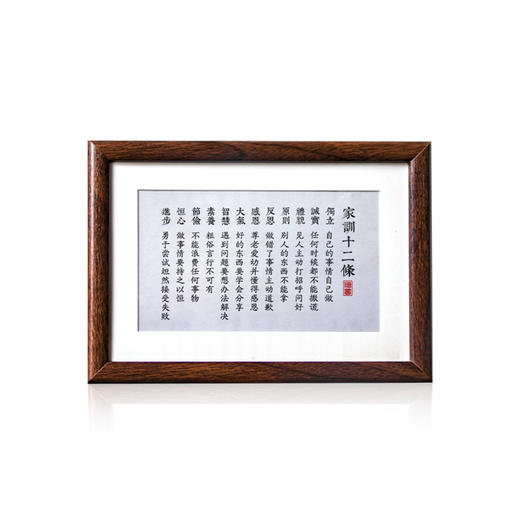 家訓十二條
獨立 自己的事情自己做
誠實 任何时候都不能撒谎
禮貌 见人主动打招呼问好
原則 别人的东西不能拿
反思 做错了事情主动道歉
感恩 尊老爱幼并懂得感恩
大氣 好的东西要学会分享
智慧 遇到问题要想办法解决
素養 粗俗言行不可有
節儉 不能浪费任何事物
恒心 做事情要持之以恒
進步 勇于尝试坦然接受失败